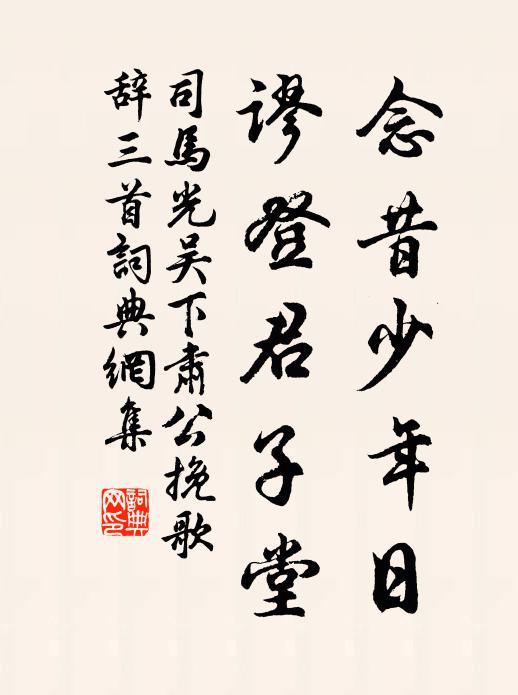 念昔少年日
谬登君子堂
司馬光吴下肃公挽歌
辞三首詞典網集
詞典
网印